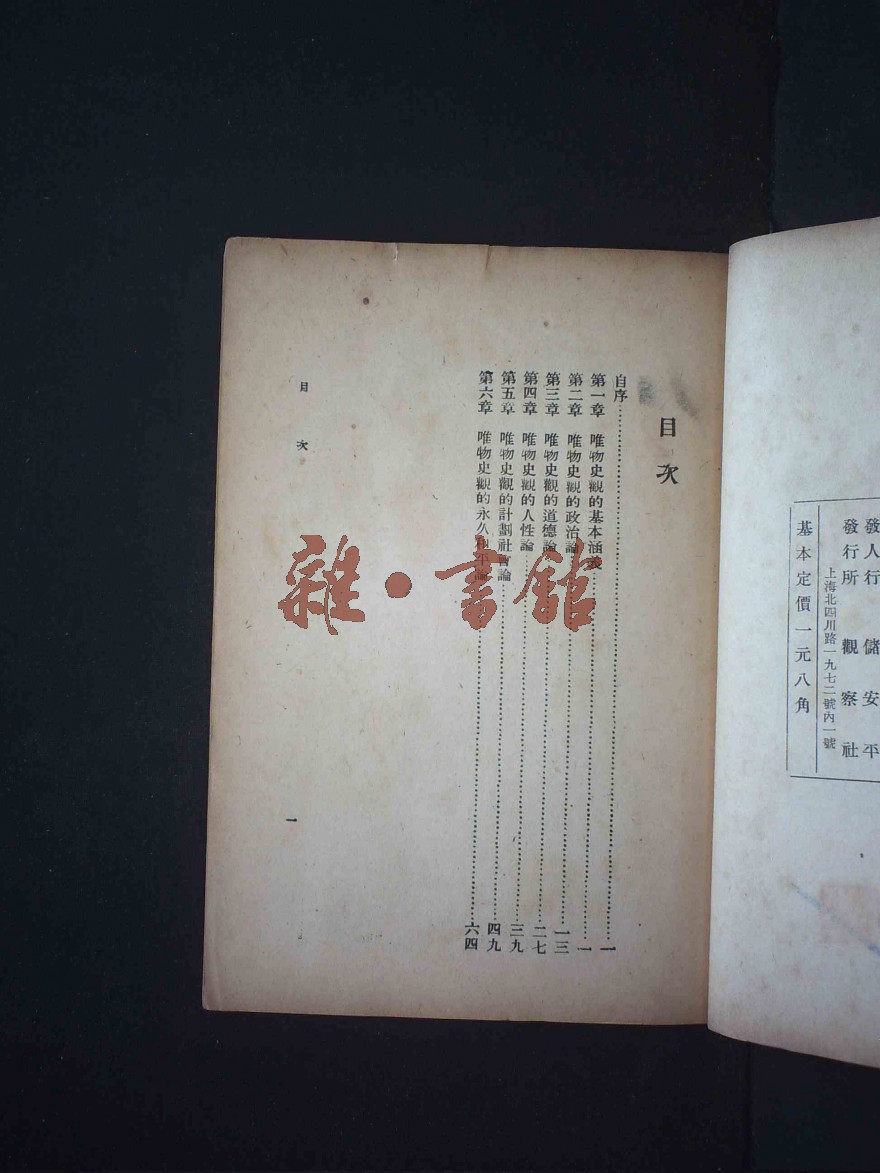 發人行 儲安平
發行所 觀察社
上海北四川路一九七二號內一號
基本定價一元八角
目次
自序……一
第一章 唯物史觀的基本涵義……一
第二章 唯物史觀的政治論……一三
第三章 唯物史觀的道德論……二七
第四章 唯物史觀的人性論……三九
第五章 唯物史觀的計劃社會論……四九
第六章 唯物史觀的永久和平論……六四
目次
一
雜·書館